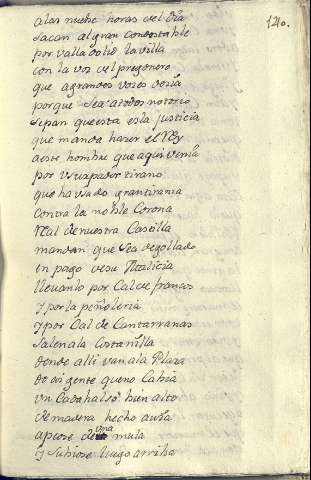 120.
a las nuebe horas del dia
sacan al gran condestable
por valladolid la villa
con la voz del pregonero
que agrandes vozes dezia
porque sea atodos notorio
sepan que esta es la justicia
que manda hazer el Rey
a este hombre que aqui venia
por usurpador tirano
que ha usado gran tirania
contra la noble Corona
Real de nuestra Castilla
mandan que sea degollado
en pago de su Malicia
llevanlo por Cal de francos
y por la peñoleria
y por Cal de Cantarranas
salen a la Costanilla
donde alli van a la Plaza
do la gente que no Cabia
un Cadahalso bien alto
de madera hecho avia
apeose de una mula
y Subiose luego arriba